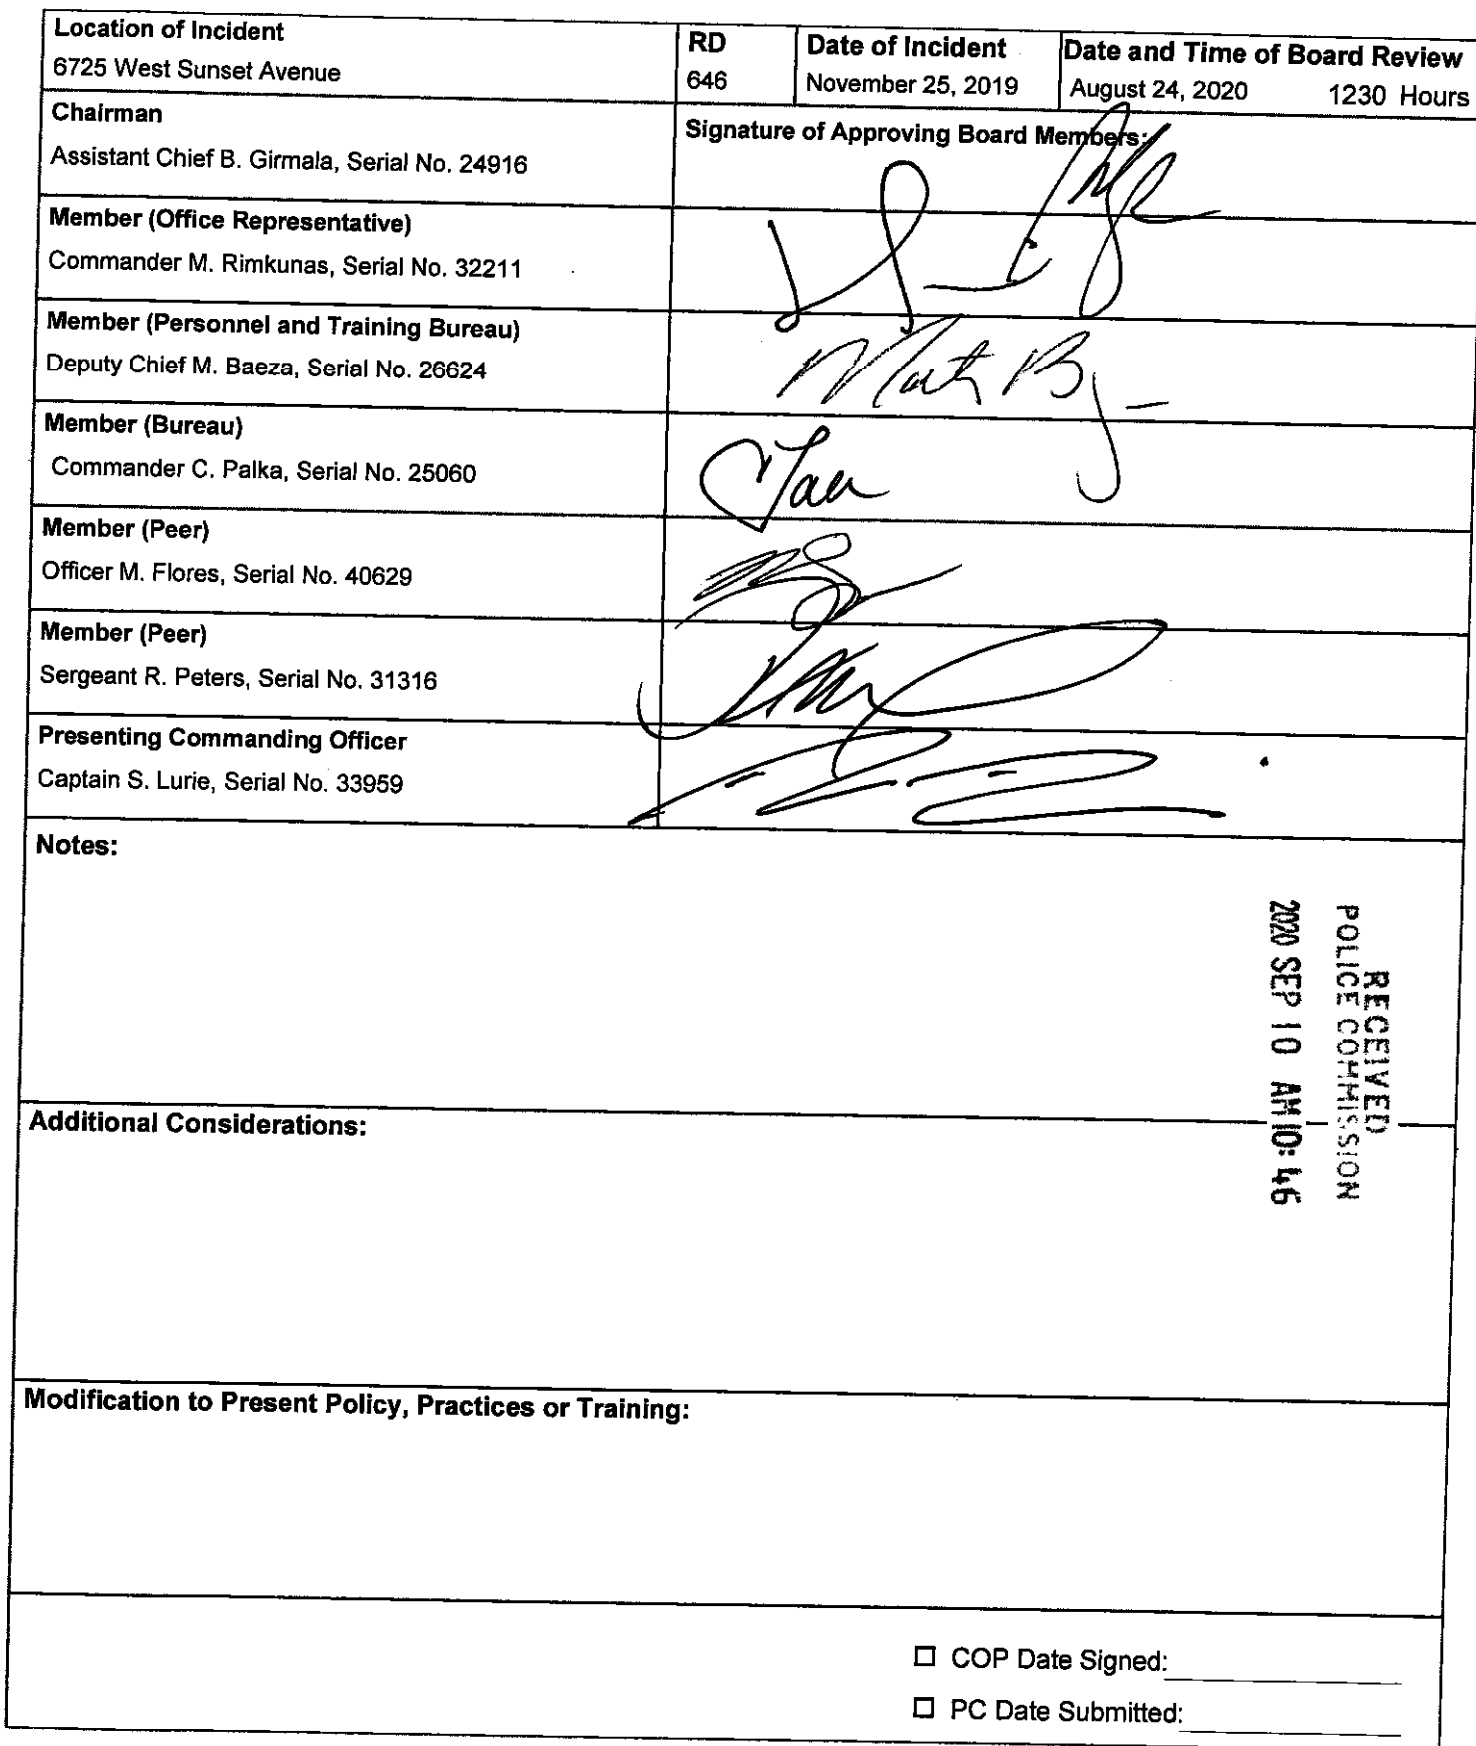 Location of Incident
6725 West Sunset Avenue
RD
646
Date of Incident
November 25, 2019
Date and Time of Board Review
August 24, 2020 1230 Hours
Chairman
Assistant Chief B. Girmala, Serial No. 24916
Signature of Approving Board Members:
Member (Office Representative)
Commander M. Rimkunas, Serial No. 32211
Member (Personnel and Training Bureau)
Deputy Chief M. Baeza, Serial No. 26624
Member (Bureau)
Commander C. Palka, Serial No. 25060
Member (Peer)
Officer M. Flores, Serial No. 40629
Member (Peer)
Sergeant R. Peters, Serial No. 31316
Presenting Commanding Officer
Captain S. Lurie, Serial No. 33959
Notes:
RECEIVED
POLICE COMMISSION
2020 SEP 10 AM 10: 46
Additional Considerations:
Modification to Present Policy, Practices or Training:
COP Date Signed:
PC Date Submitted: